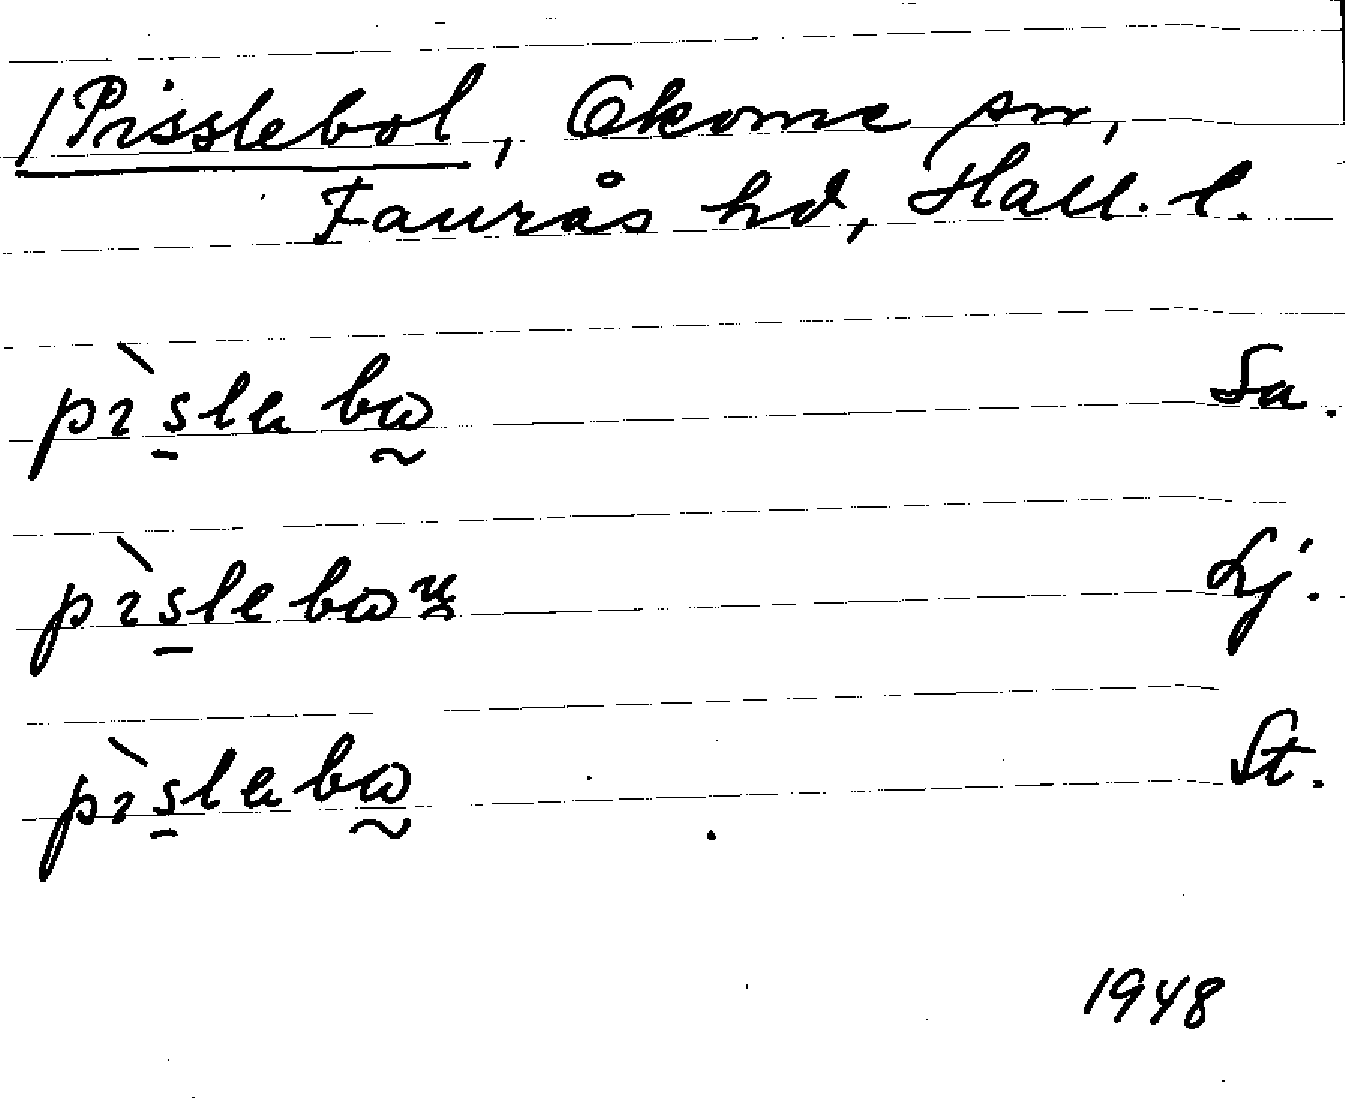 /Pisslebol, Okome sn,
Faurås hd, Hall. l.
pìslebω Sa.
pìslebωu Lj.
pìslebω St.
1948